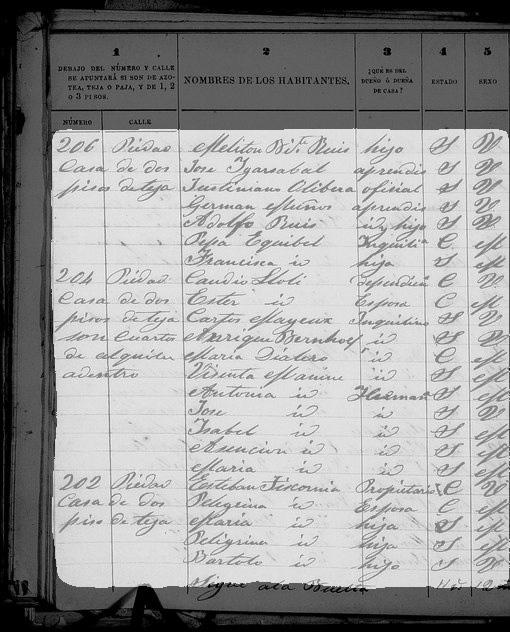 1
2
3
4
5
DEBAJO DEL NÚMERO Y CALLE
SE APUNTARÁ SI SON DE AZO-
TEA, TEJA O PAJA, Y DE 1, 2
O 3 PISOS.
NOMBRES DE LOS HABITANTES.
¿QUÉ ES DEL
DUEÑO Ó DUEÑA
DE CASA?
ESTADO
SEXO
NÚMERO CALLE
206 Piedad Meliton Ruis hijo S V
Casa de dos Jose Ygarsabal aprendis S V
pisos de teja Justiniano Olibera oficial S V
German Muños aprendis S V
Adolfo Ruis hijo S V
Pepa Equibel C M
Francisca id hija S M
204 Piedad Stoli C V
Casa de dos Ester id Esposa C M
pisos de teja Carlos Inquilino S V
son Cuartos Bernhof id S V
de alquiler Maria id C M
adentro id S M
Antonia id S M
Jose id id S V
Ysabel id id S M
Asencion id id S M
Maria id id S M
202 Piedad Esteban Propietario C V
Casa de dos Pelegrina id Esposa C M
piso de teja Maria id hija S M
Peligrina id hija S M
Bartolo id hijo S V
Sigue a la Buelta